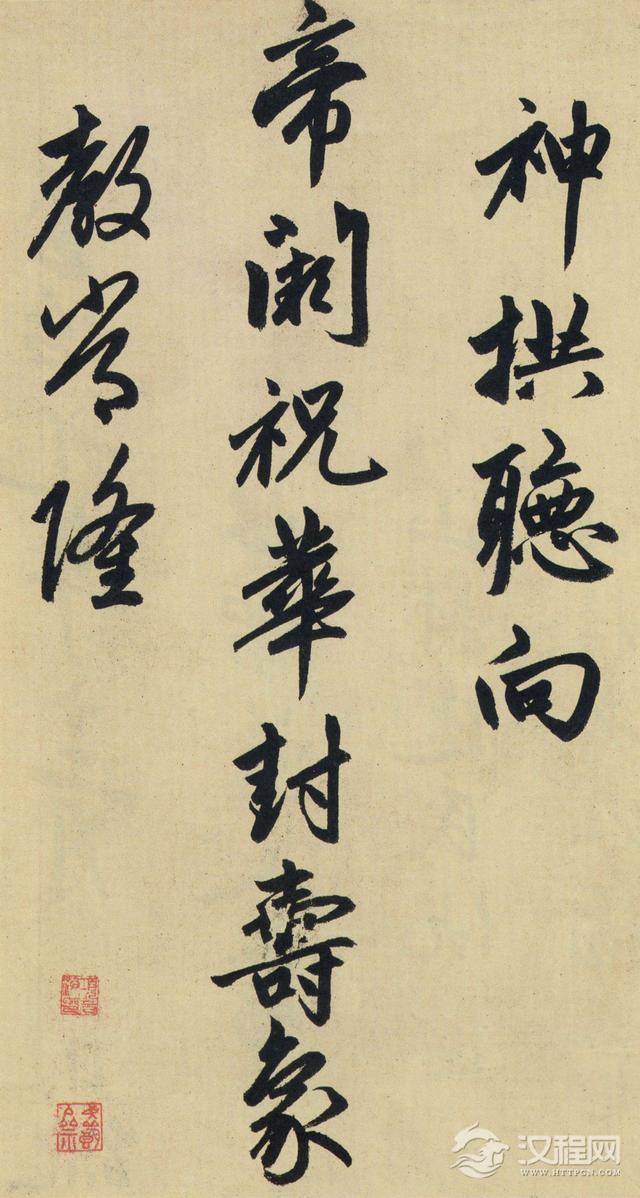 神拱聽向
帝闕祝華封壽象
教常隆
汉程网
WWW.HTTPCN.COM